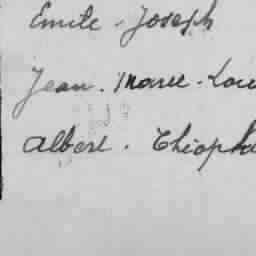 Emile - Joseph
Jean - Marie - Lou
Albert - Théopha